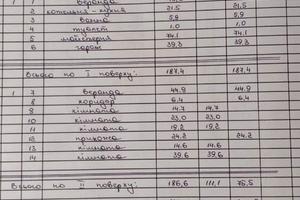 1 1 веранда
2 котельня-кухня 21,5 21,5
3 ванна 5,9 5,9
4 туалет 1,0 1,0
5 майстерня 74,1 74,1
6 гараж 39,3 39,3
Всього по I поверху: 187,4 187,4
1 7 Веранда 44,9 44,9
8 коридор 6,4 6,4
9 кімната 14,7 14,7
10 кімната 23,0 23,0
11 кімната 19,2 19,2
12 прихожа 24,2 24,2
13 кімната 14,6 14,6
14 кімната 39,6 39,6
Всього по II поверху: 186,6 111,1 75,5